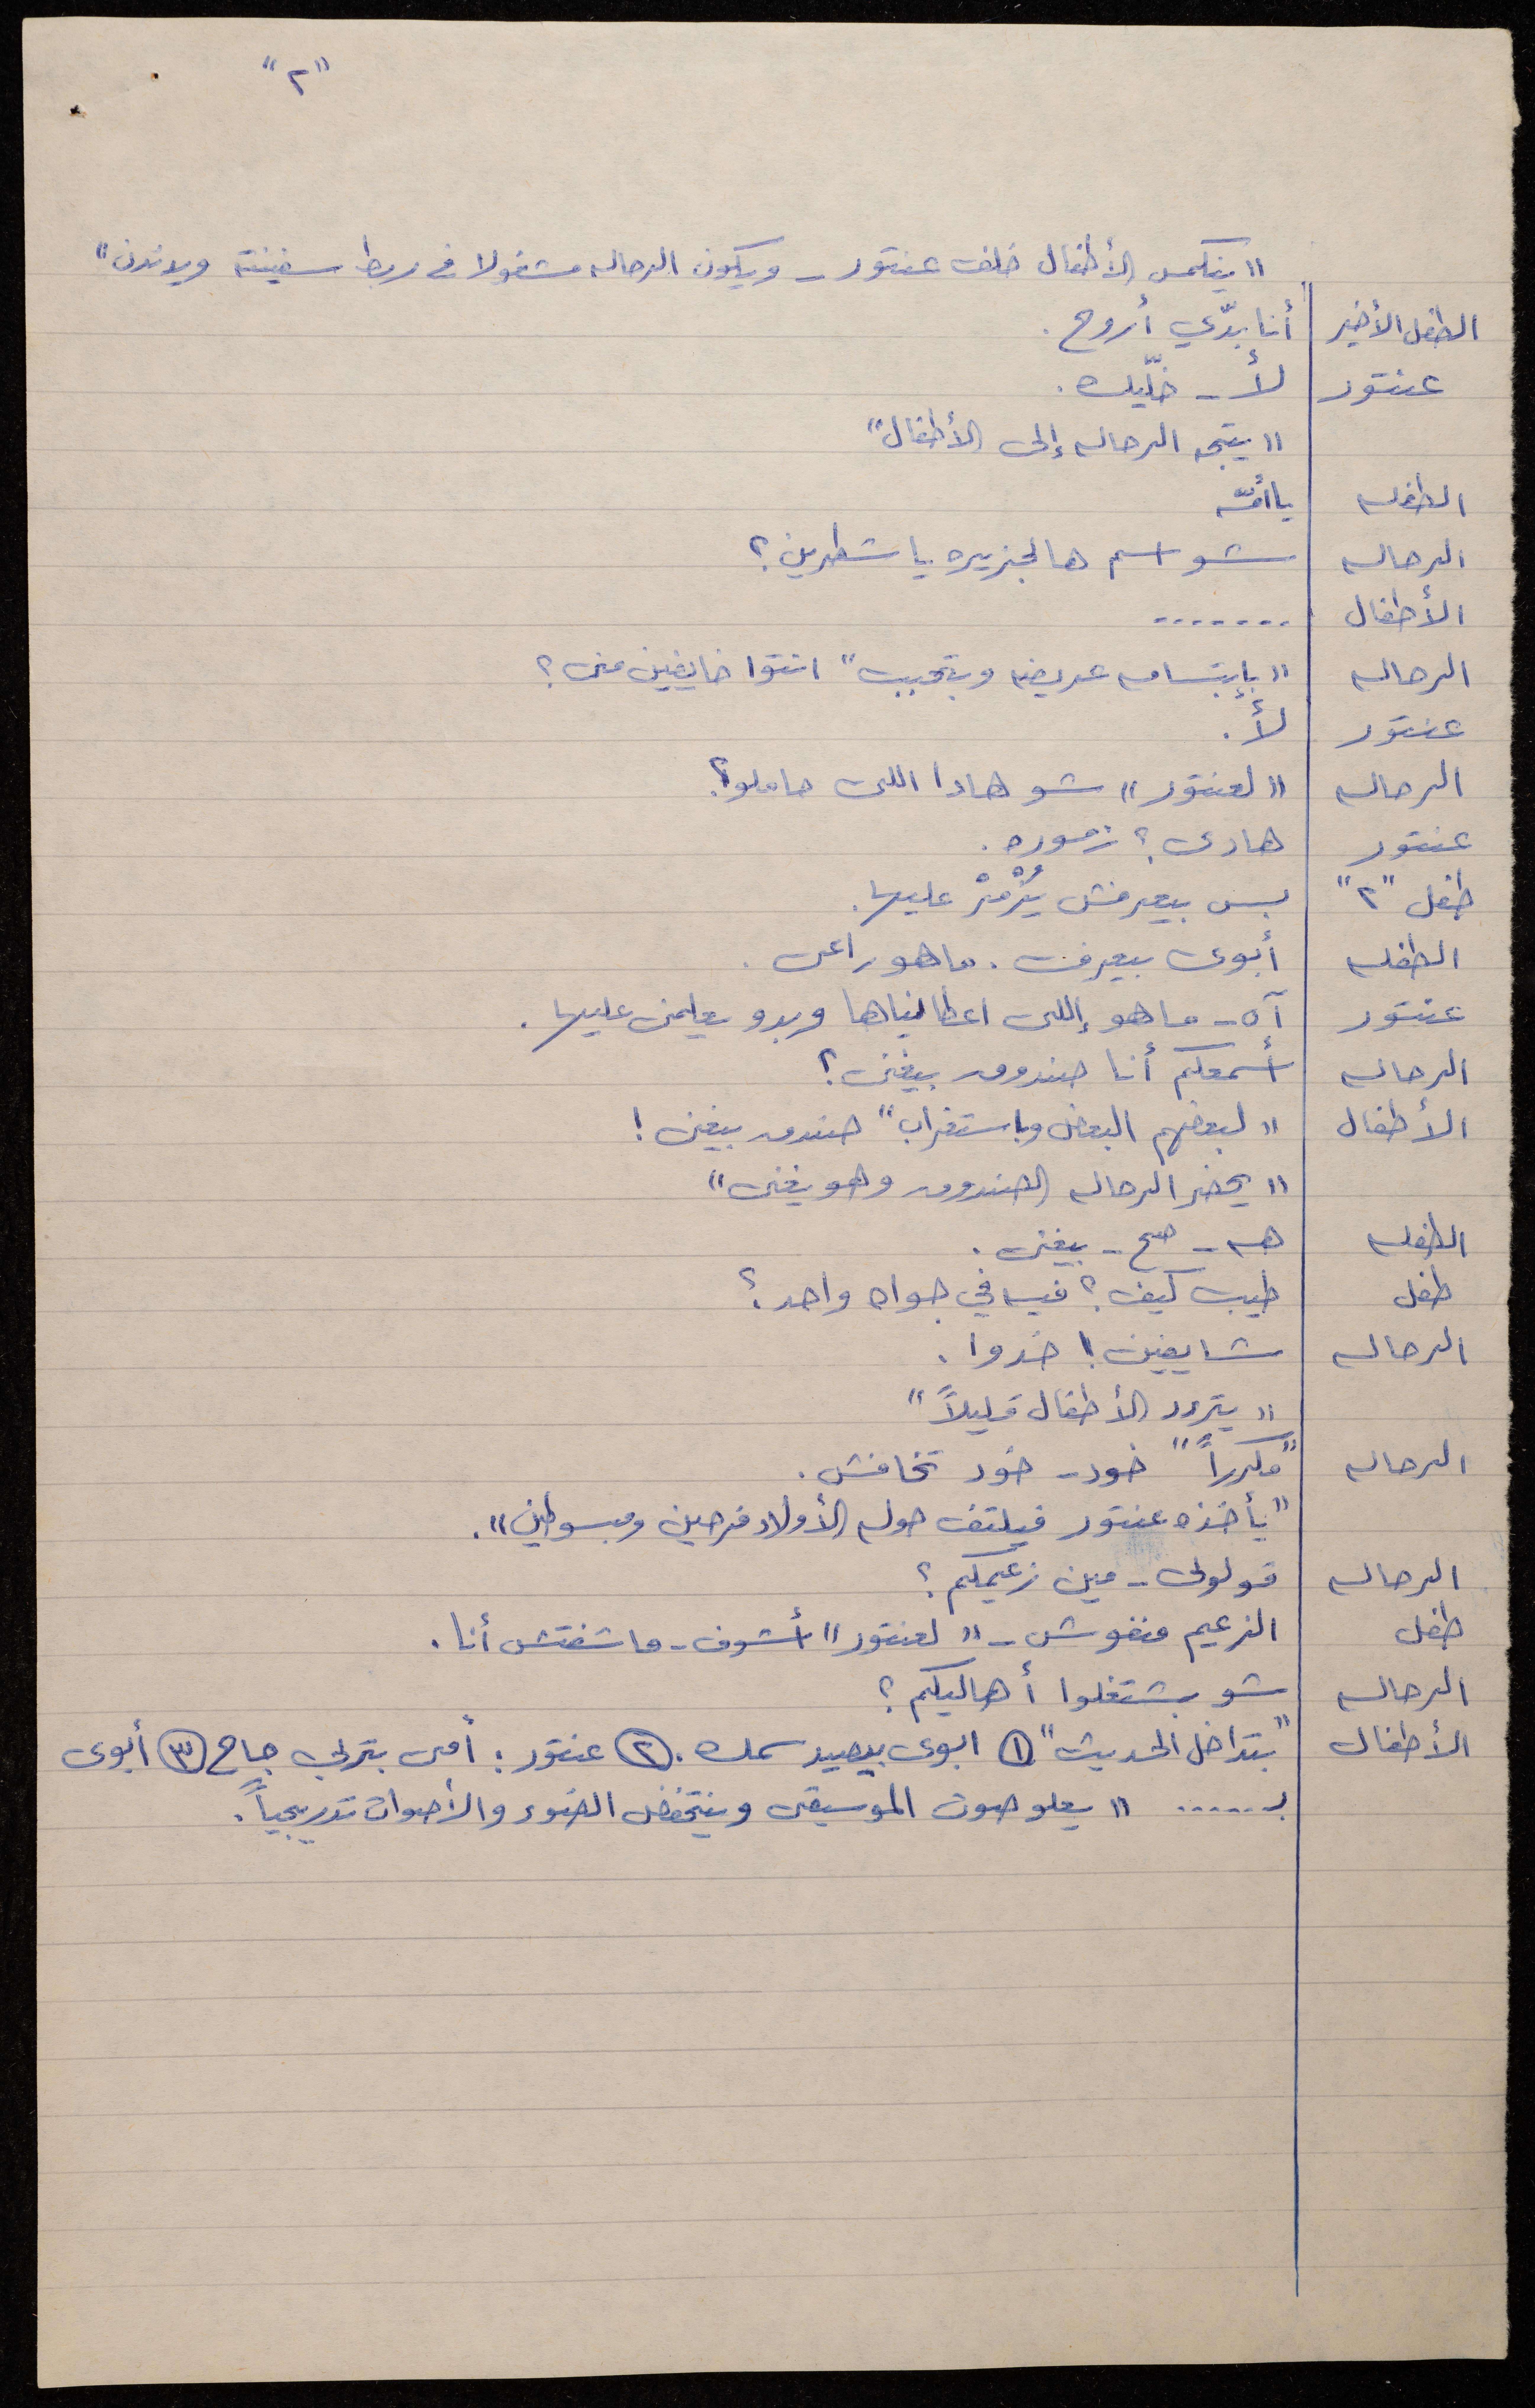 "٢"
"ينكمس الأطفال خلف عنتور - ويكون الرحاله مشغولا في ربط سفينته ويدندن"
الطفل الأخير أنا بدّي أروح .
عنتور لأ - خلّيك .
"يتجه الرحاله إلى الأطفال"
الطفله يا أمّه
الرحاله شو اسم هالجزيره يا شطرين ؟
الأطفال .......
الرحاله "بإبتسامه عريضه وبتحبب" انتوا خايفين منى ؟
عنتور لأ .
الرحاله "لعنتور" شو هادا اللى حاملو ؟
عنتور هادى ؟ زموره .
طفل "٢" بس بيعرفش يُزْمُرْ عليها .
الطفله أبوى بيعرف . ما هو راعى .
عنتور آه - ما هو إللى اعطانياها وبدو يعلمنى عليها .
الرحاله أسمعكم أنا صندوق بيغنى ؟
الأطفال "لبعضهم البعض وباستغراب" صندوق بيغنى !
"يحضر الرحاله الصندوق وهو يغنى"
الطفله هه - صح - بيغنى .
طفل طيب كيف ؟ فيه في جواه واحد ؟
الرحاله شايفين ! خدوا .
"يتردد الأطفال قليلاً"
الرحاله "مكرراً" خود - خود تخافش .
"يأخذه عنتور فيلتف حوله الأولاد فرحين ومبسوطين" .
الرحاله قولولى - مين زعيمكم ؟
طفل الزعيم منفوش - "لعنتور" أشوف - ما شفتش أنا .
الرحاله شو بشتغلوا أهاليكم ؟
الأطفال "بتداخل الحديث" ١ ابوى بيصيد سمك . ٢ عنتور : أمى بتربي جاج ٣ أبوى
بـ ...... "يعلو صوت الموسيقى وينخفض الضوء والأصوات تدريجياً .